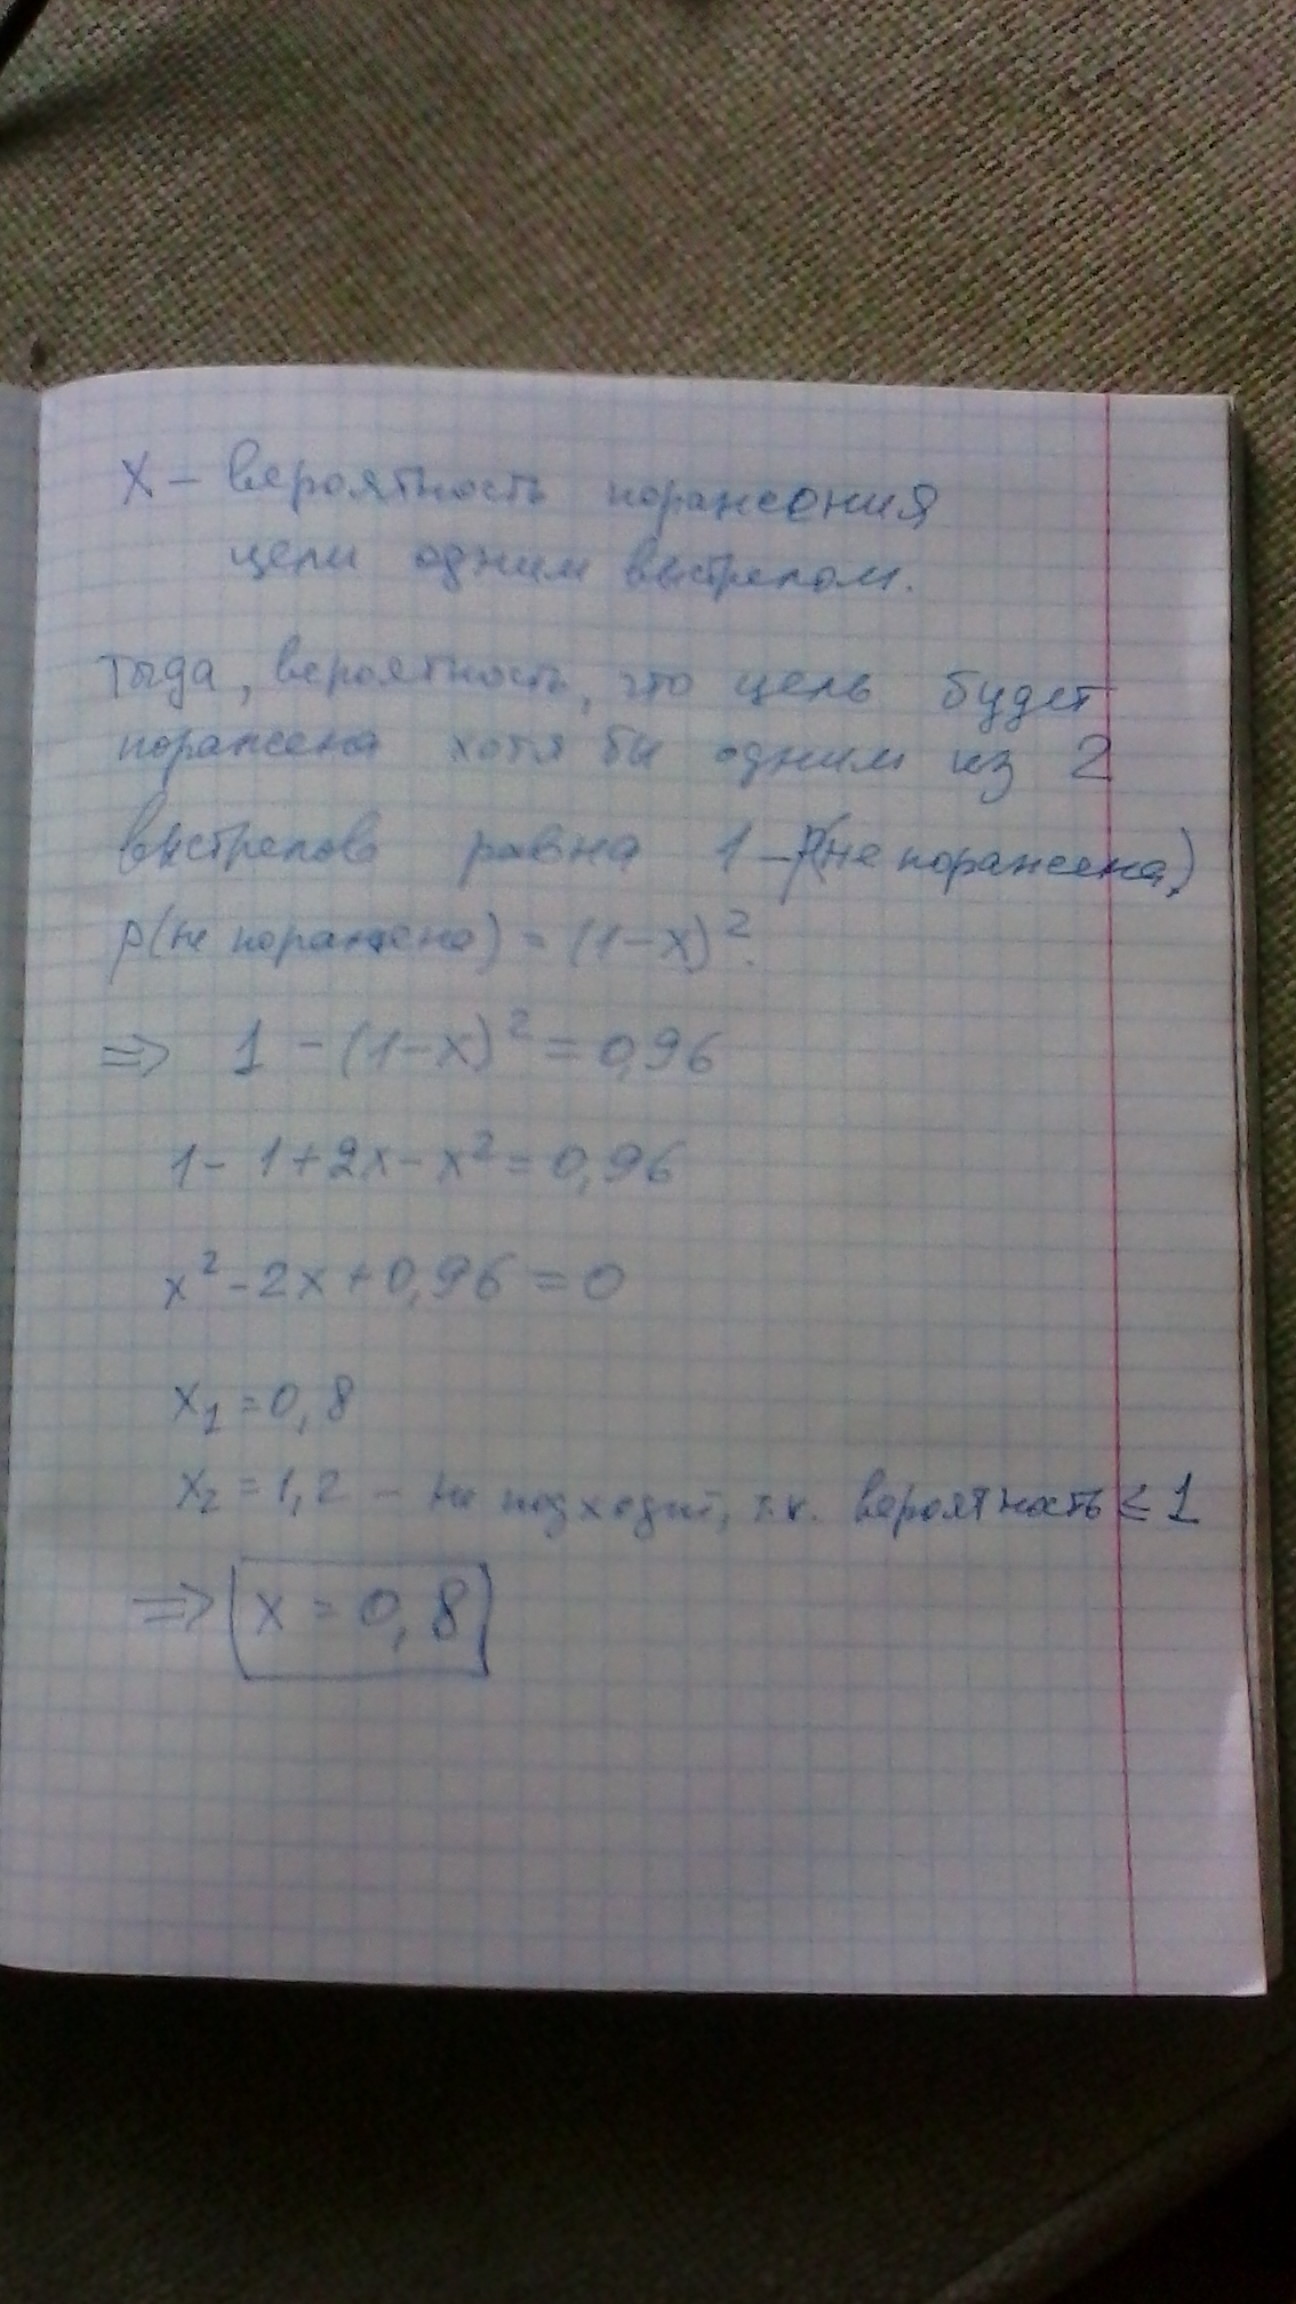 X – вероятность поражения
цели одним выстрелом.
Тогда, вероятность, что цель будет
поражена хотя бы одним из 2
выстрелов равна 1 – P(не поражена)
P(не поражено) = (1-x)².
=> 1 - (1-x)² = 0,96
1 - 1 + 2x - x² = 0,96
x² - 2x + 0,96 = 0
x₁ = 0,8
x₂ = 1,2 – не подходит, т.к. вероятность ≤ 1
=> x = 0,8